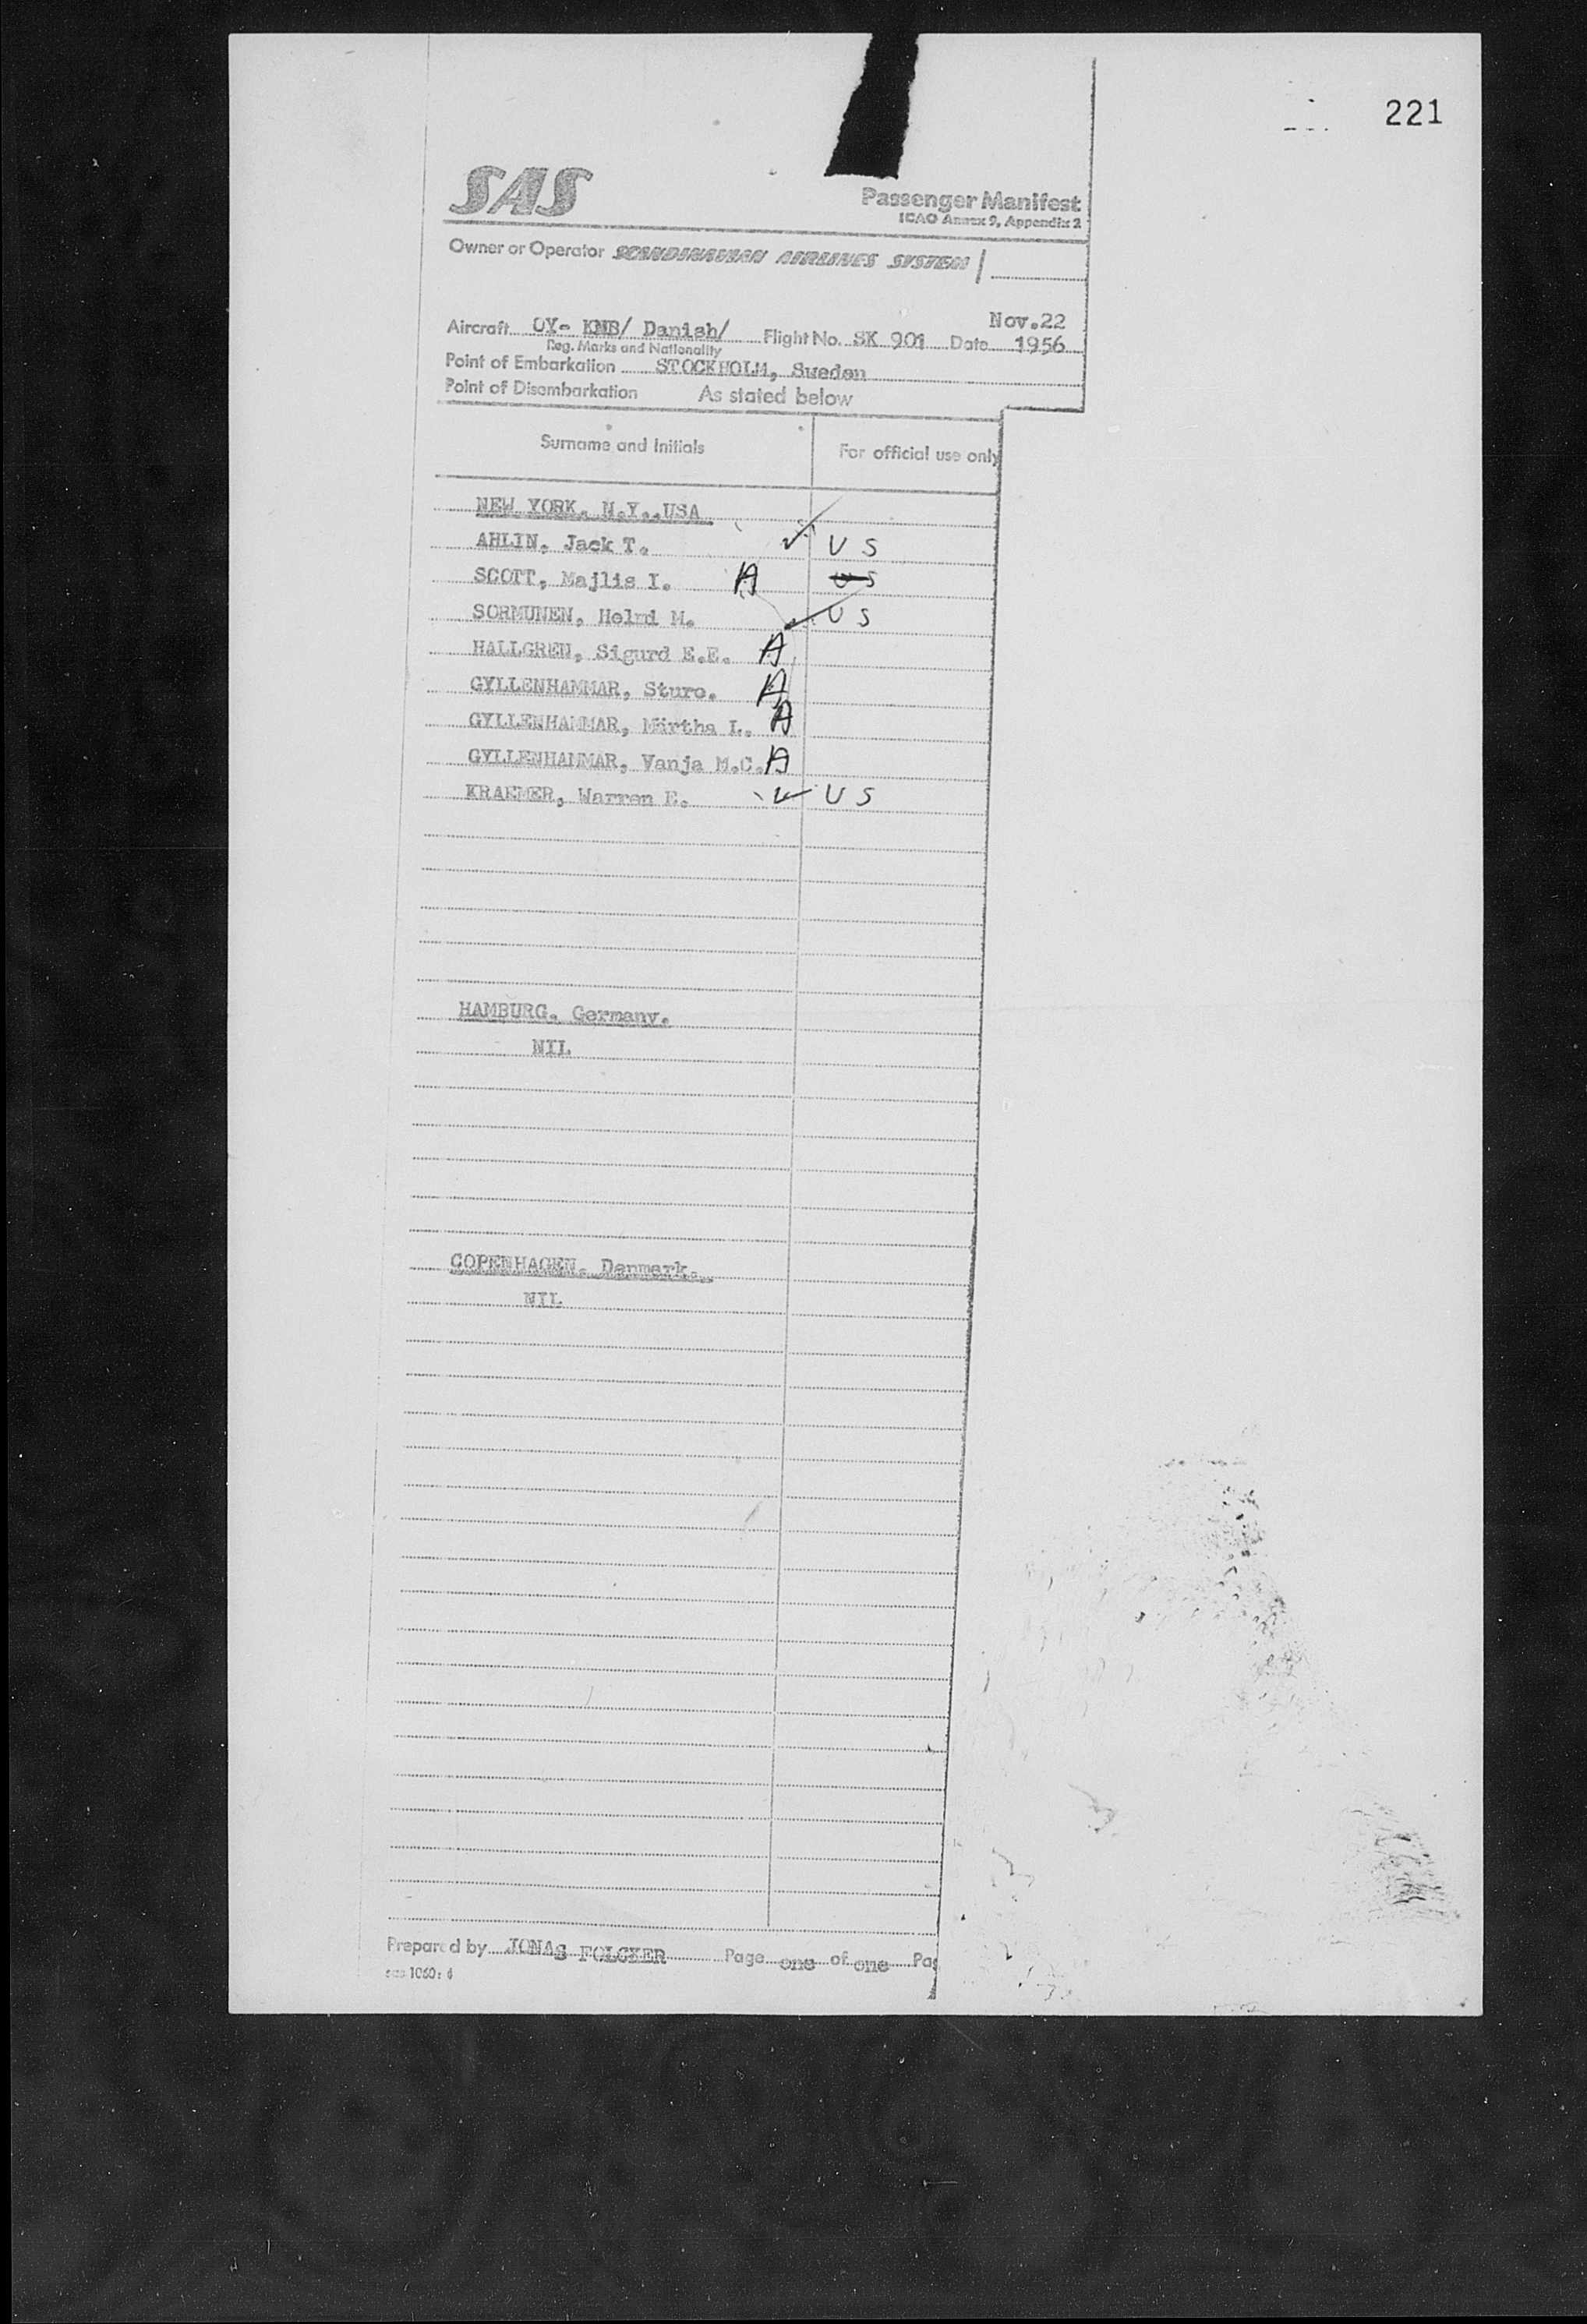 221
SAS
Passenger Manifest
ICAO Annex 9, Appendix 2
Owner or Operator SCANDINAVIAN AIRLINES SYSTEM
Nov.22
Aircraft OY- KMB/ Danish/ Flight No. SK 901 Date 1956
Reg. Marks and Nationality
Point of Embarkation STOCKHOLM, Sweden
Point of Disembarkation As stated below
Surname and Initials For official use only
NEW YORK, N.Y.,USA
AHLIN, Jack T. ✓ U S
SCOTT, Majlis I. A U S
SORMUNEN, Helmi M. ✓ U S
HALLGREN, Sigurd E.E. A
GYLLENHAMMAR, Sture. A
GYLLENHAMMAR, Märtha L. A
GYLLENHAMMAR, Vanja M.C. A
KRAEMER, Warren E. ✓ U S
HAMBURG, Germany.
NIL
COPENHAGEN, Denmark.
NIL
Prepared by JONAS FOLCKER Page one of one Pag
1060: 6